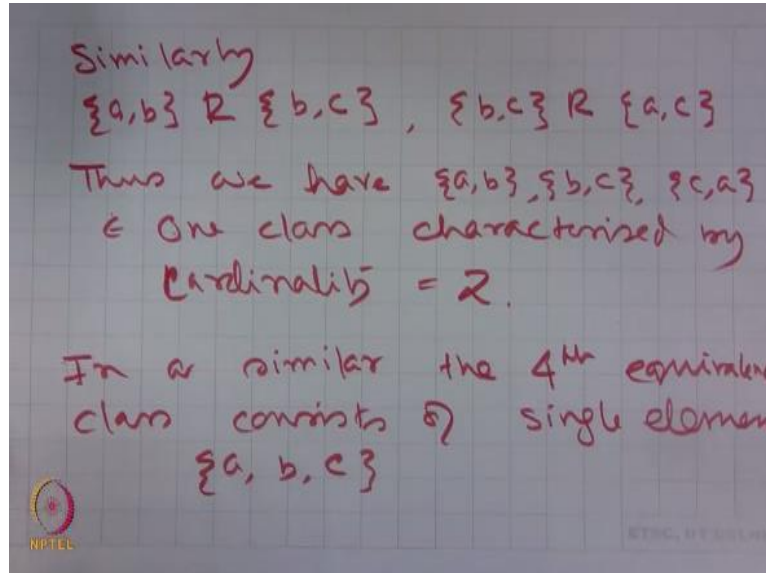 Similarly
{a,b} R {b,c} , {b,c} R {a,c}
Thus we have {a,b}, {b,c}, {c,a}
∈ One class characterised by
Cardinality = 2.
In a similar the 4th
class consists of single
{a, b, c}
NPTEL